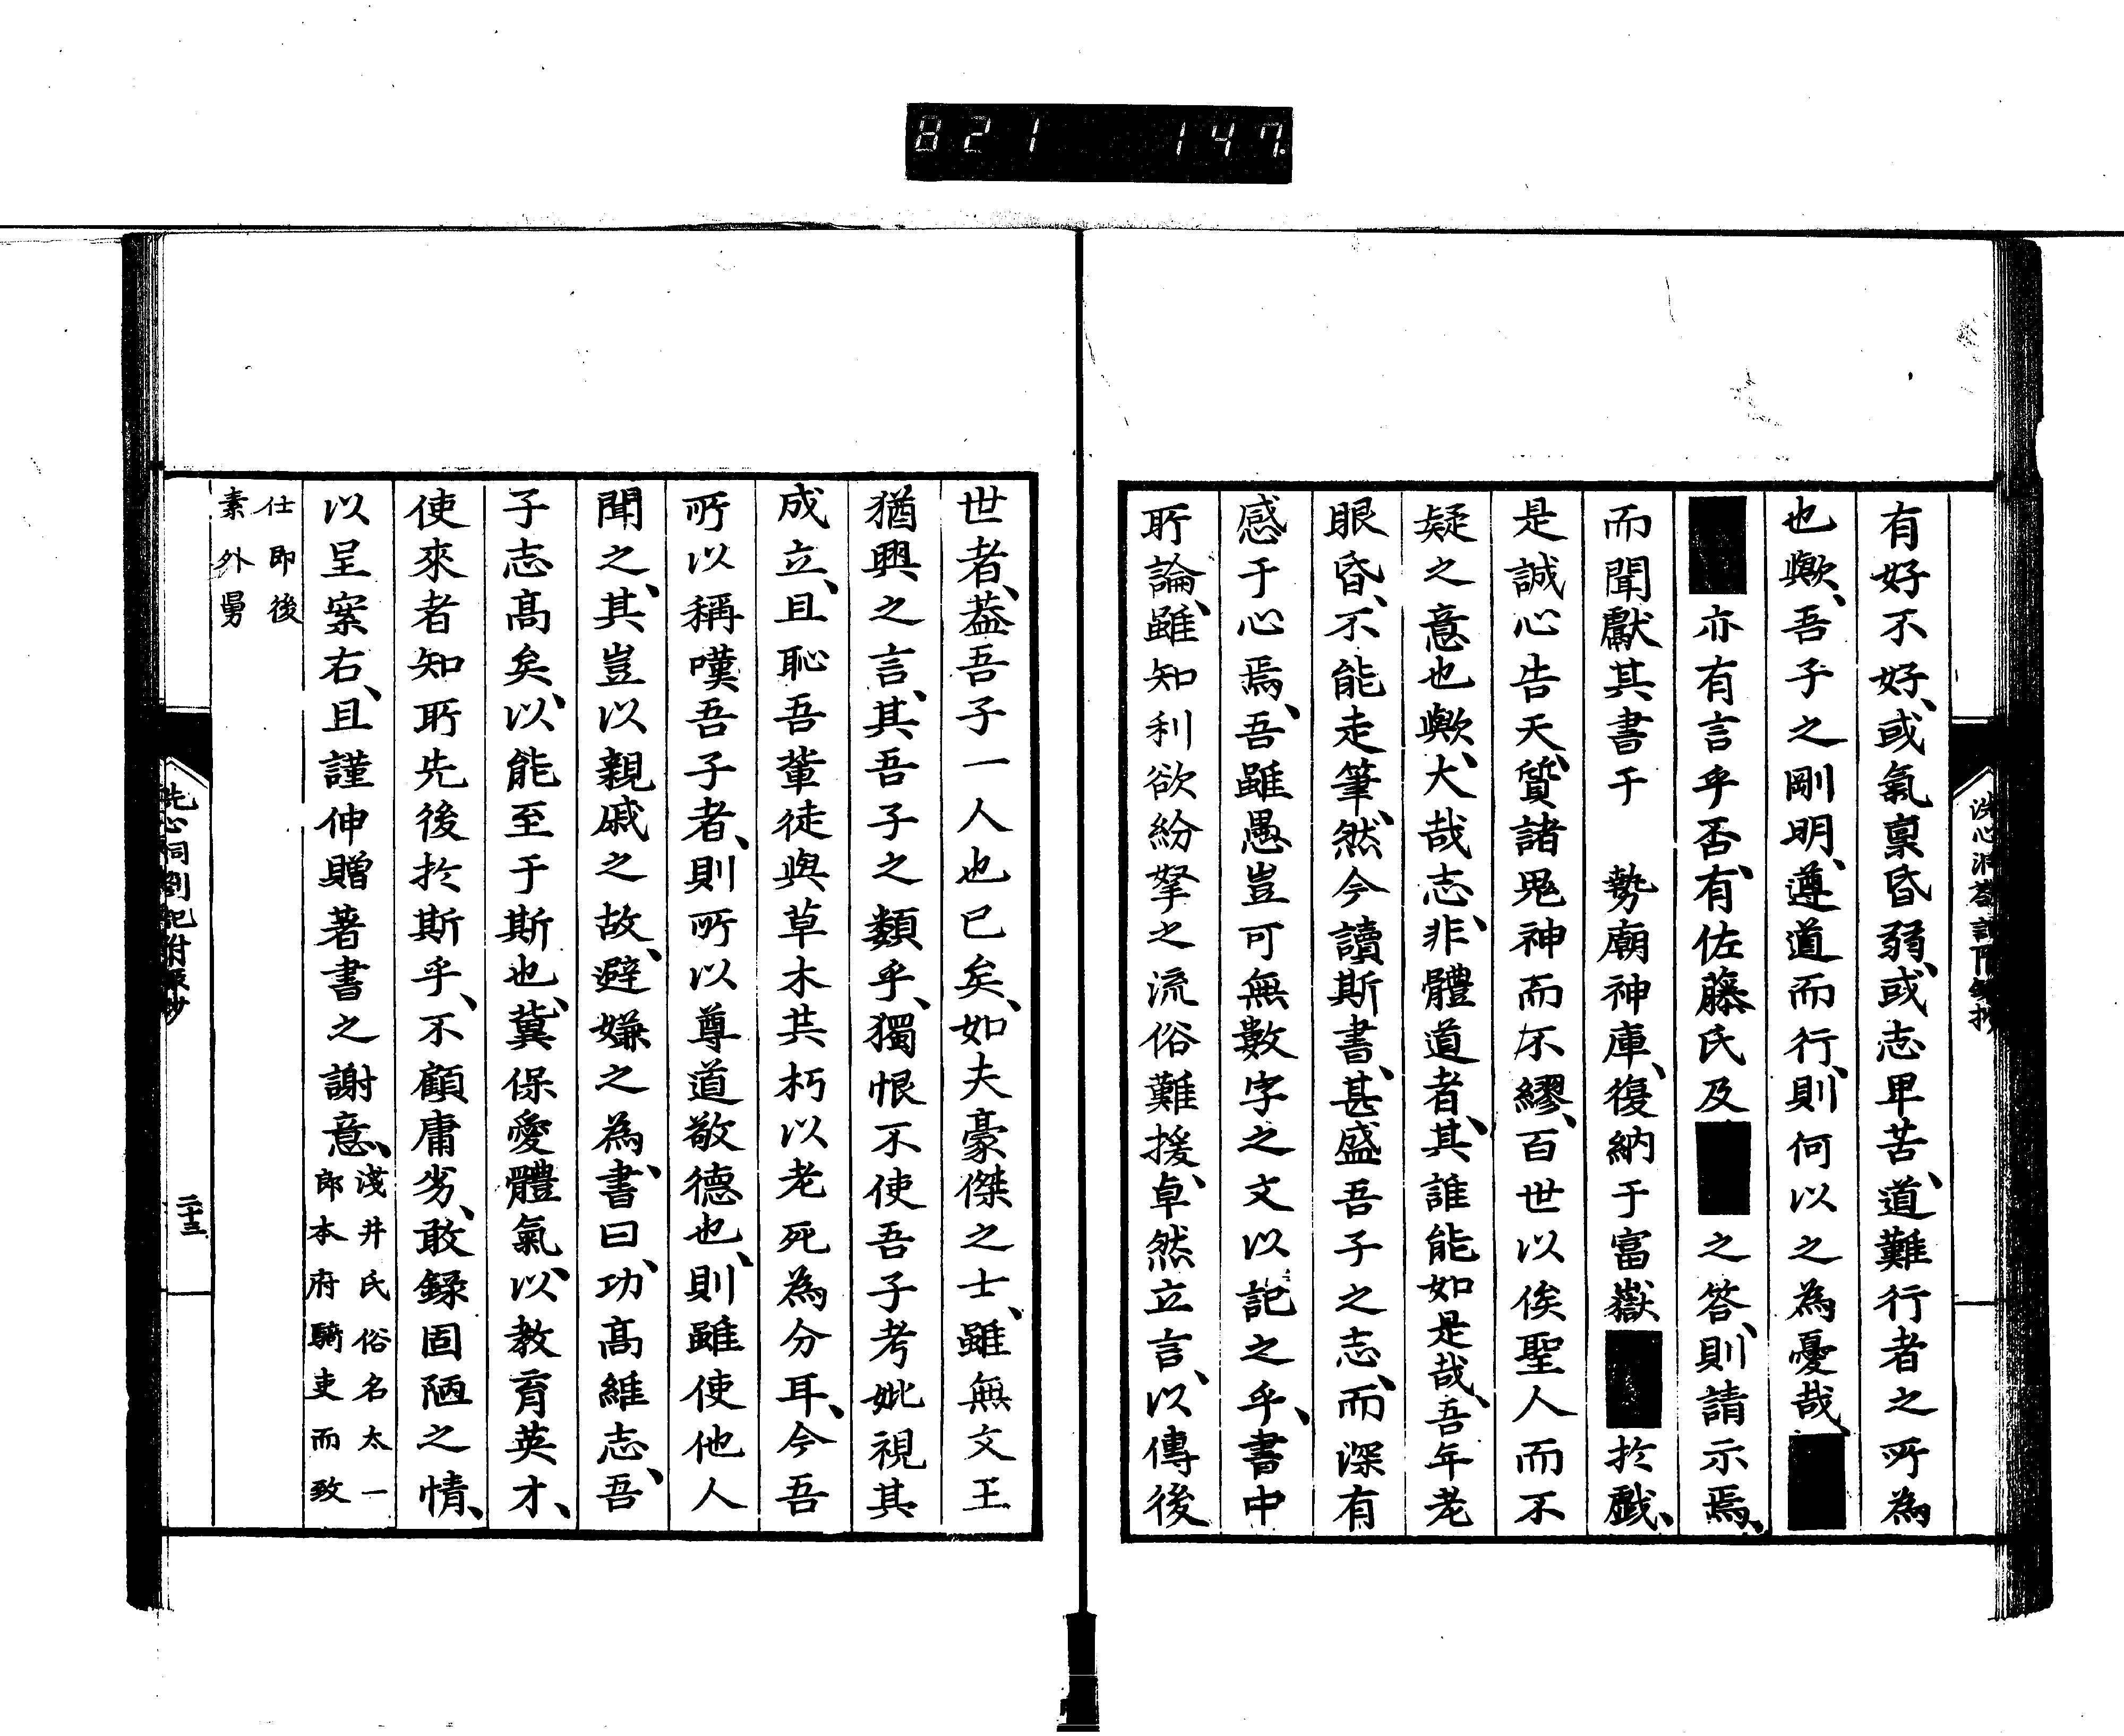 821 147
有好不好、或氣稟昏弱、或志卑苦、道難行者之所為
也歟、吾子之剛明、遵道而行、則何以之為憂哉、
亦有言乎否、有佐藤氏及 之答、則請示焉、
而聞獻其書于 勢廟神庫、復納于富嶽 於戲、
是誠心告天、質諸鬼神而不繆、百世以俟聖人而不
疑之意也歟、大哉志、非體道者、其誰能如是哉、吾年老
眼昏、不能走筆、然今讀斯書、甚盛吾子之志、而深有
感于心焉、吾雖愚豈可無數字之文以記之乎、書中
所論、雖知利欲紛拏之流俗難援、卓然立言、以傳後
世者、蓋吾子一人也已矣、如夫豪傑之士、雖無文王
猶興之言、其吾子之類乎、獨恨不使吾子考妣視其
成立、且恥吾輩徒與草木共朽以老死為分耳、今吾
所以稱嘆吾子者、則所以尊道敬德也、則雖使他人
聞之、其豈以親戚之故、避嫌之為、書曰、功高維志、吾
子志高矣、以能至于斯也、冀保愛體氣、以教育英才、
使來者知所先後於斯乎、不顧庸劣、敢錄固陋之情、
以呈案右、且謹伸贈著書之謝意、淺井氏俗名太一
郎本府騎吏而致
仕即後
素外舅
洗心洞劄記附錄抄
二十三